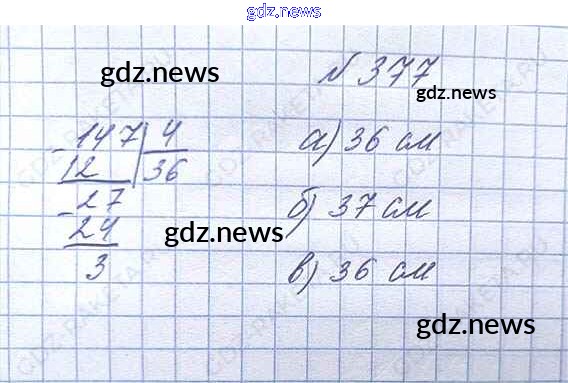 gdz.news
gdz.news
№ 377
gdz.news
- 147 | 4
12 36
- 27
24
3
а) 36 см
б) 37 см
gdz.news
в) 36 см
gdz.news
GDZ-RAKETA.RU